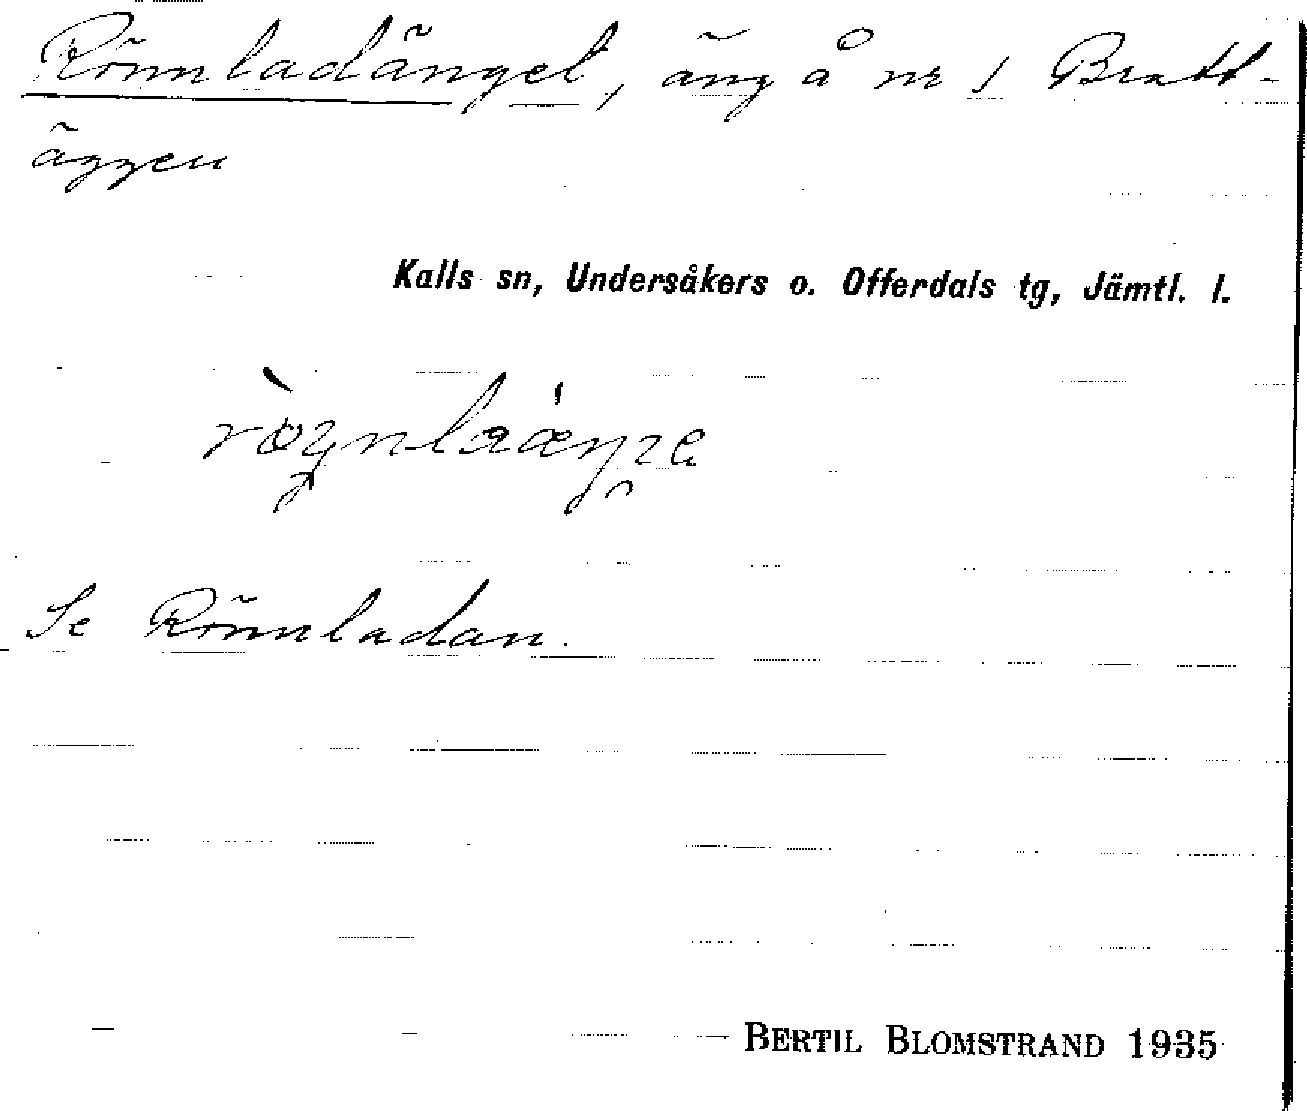 Rönnladängel, äng å nr 1 Bratt-
äggen
Kalls sn, Undersåkers o. Offerdals tg, Jämtl. l.
Se Rönnladan.
BERTIL BLOMSTRAND 1935